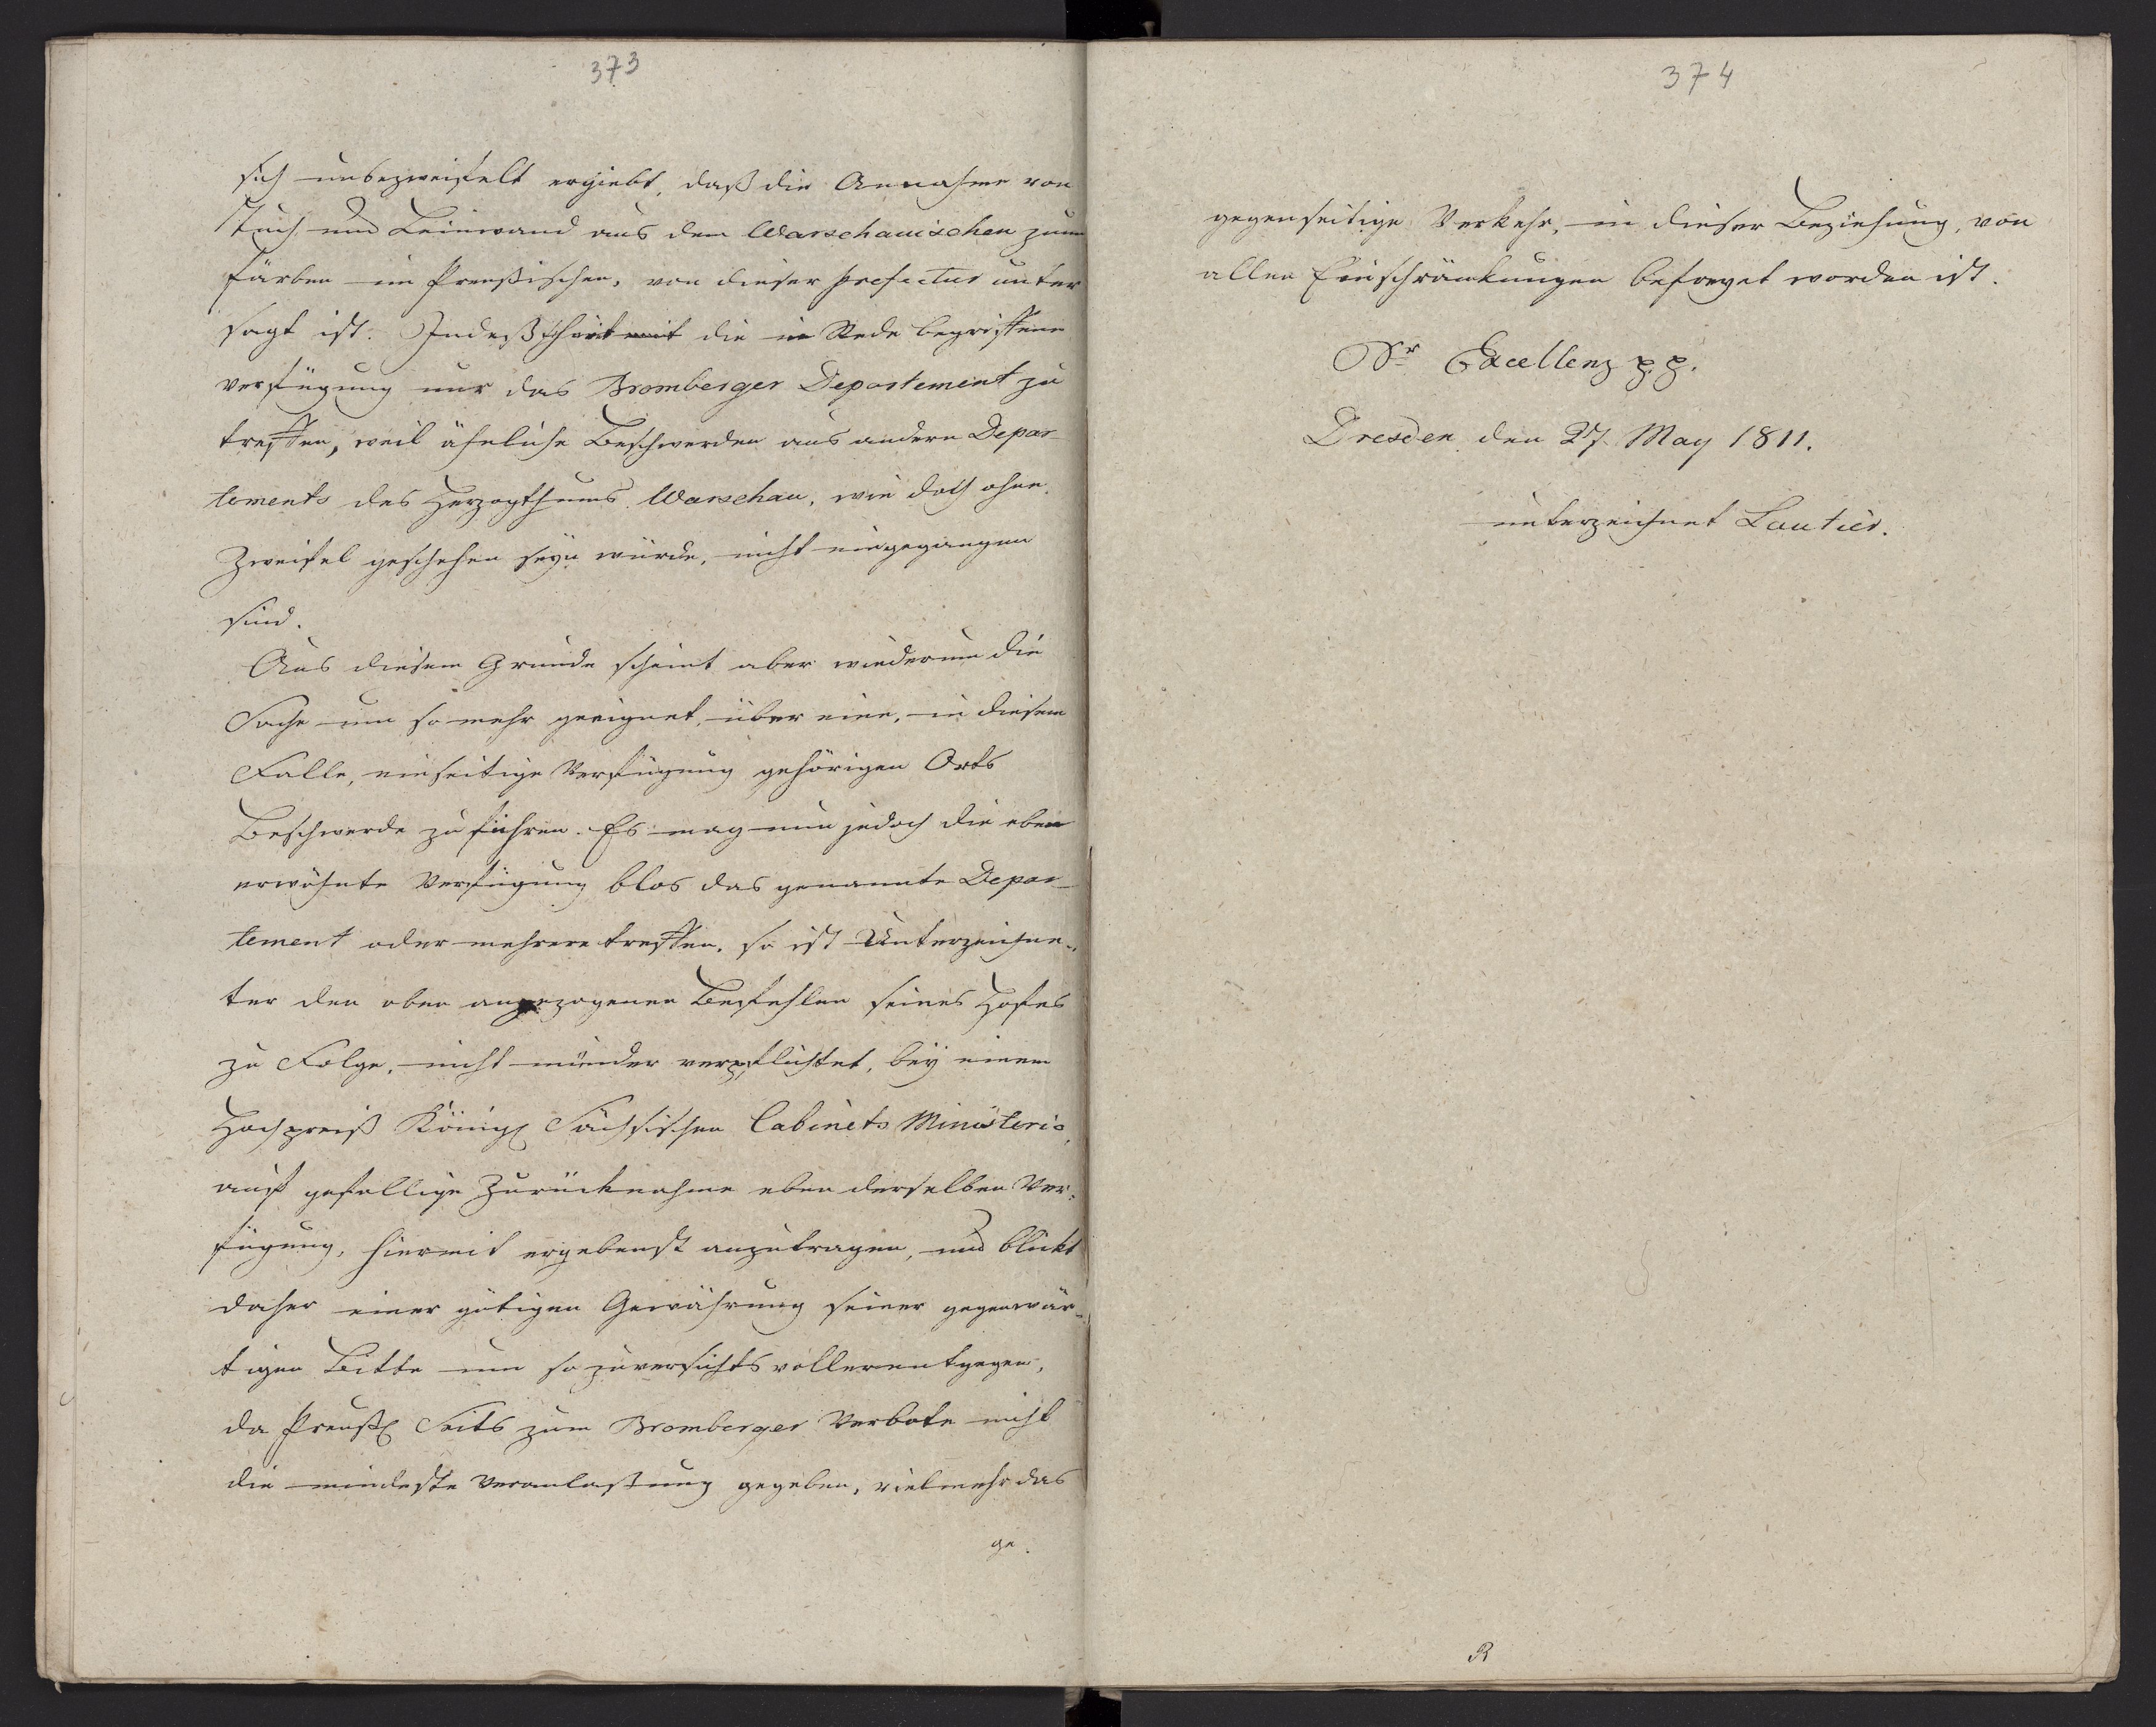 373
sich unbezweifelt ergiebt, daß die Annahme von
Tuch und Leinwand aus dem Warschauischen zum
färben im Preußischen, von dieser Prefectur unter
sagt ist. Indeß scheint die in Rede begriffene
Verfügung nur das Bromberger Departement zu
treffen, weil ähnliche Beschwerden aus andern Depar-
tements des Herzogthums Warschau, wie doch ohne
Zweifel geschehen seyn würde, nicht eingegangen
sind.
Aus diesem Grunde scheint aber wiederum die
Sache um so mehr geeignet, über eine, in diesem
Falle, einseitige Verfügung gehörigen Orts
Beschwerde zu führen. Es mag nun jedoch die eben
erwähnte Verfügung blos das genannte Depar-
tement oder mehrere treffen, so ist Unterzeichne-
ter den oben angezogenen Befehlen seines Hofes
zu Folge, nicht minder verpflichtet, bey einem
Hochpreiß Königl Sächsischen Cabinets Ministerio,
auf gefällige Zurücknahme eben derselben Ver-
fügung, hiermit ergebenst anzutragen, und blickt
daher einer gütigen Gewährung seiner gegenwär-
tigen Bitte um so zuversichtsvoller entgegen,
da Preußl Seits zum Bromberger Verbote nicht
die mindeste Veranlaßung gegeben, vielmehr das
ge.
374
gegenseitige Verkehr, in dieser Beziehung, von
allen Einschränkungen befreyet worden ist.
Sr Excellenz p.p.
Dresden den 27. May 1811.
unterzeichnet Lautier.
R